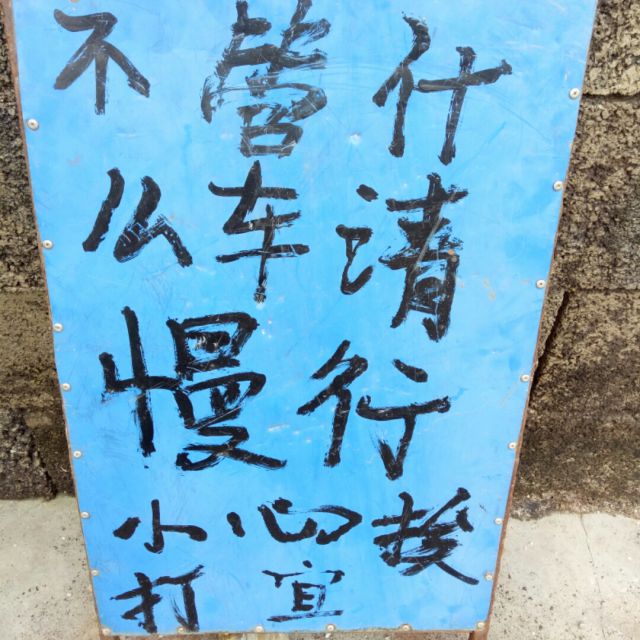 不管什
么车请
慢行
小心挨
打宜